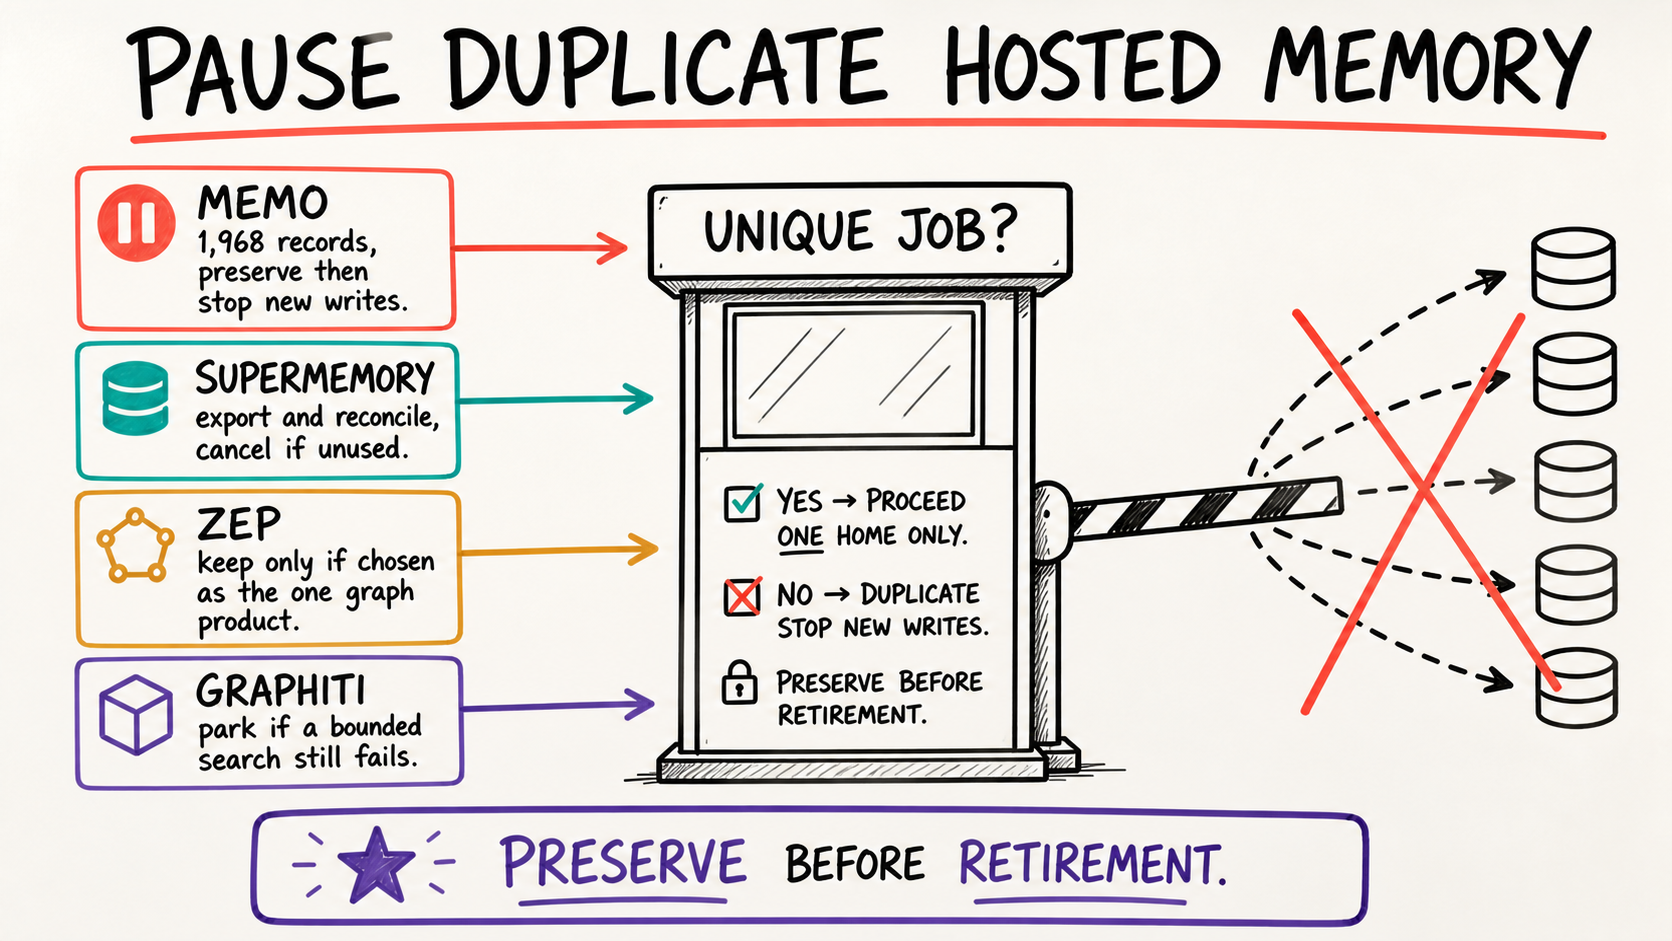 PAUSE DUPLICATE HOSTED MEMORY
MEMO
1,968 records,
preserve then
stop new writes.
SUPERMEMORY
export and reconcile,
cancel if unused.
ZEP
keep only if chosen
as the one graph
product.
GRAPHITI
park if a bounded
search still fails.
UNIQUE JOB?
YES → PROCEED
ONE HOME ONLY.
NO → DUPLICATE
STOP NEW WRITES.
PRESERVE BEFORE
RETIREMENT.
PRESERVE BEFORE RETIREMENT.